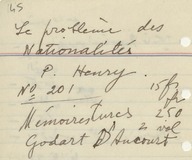 45
Le problème des
Nationalités
P. Henry.
No 201 15 fr
Mémoires turcs 2 50
2 vol
Godart D'Aucourt